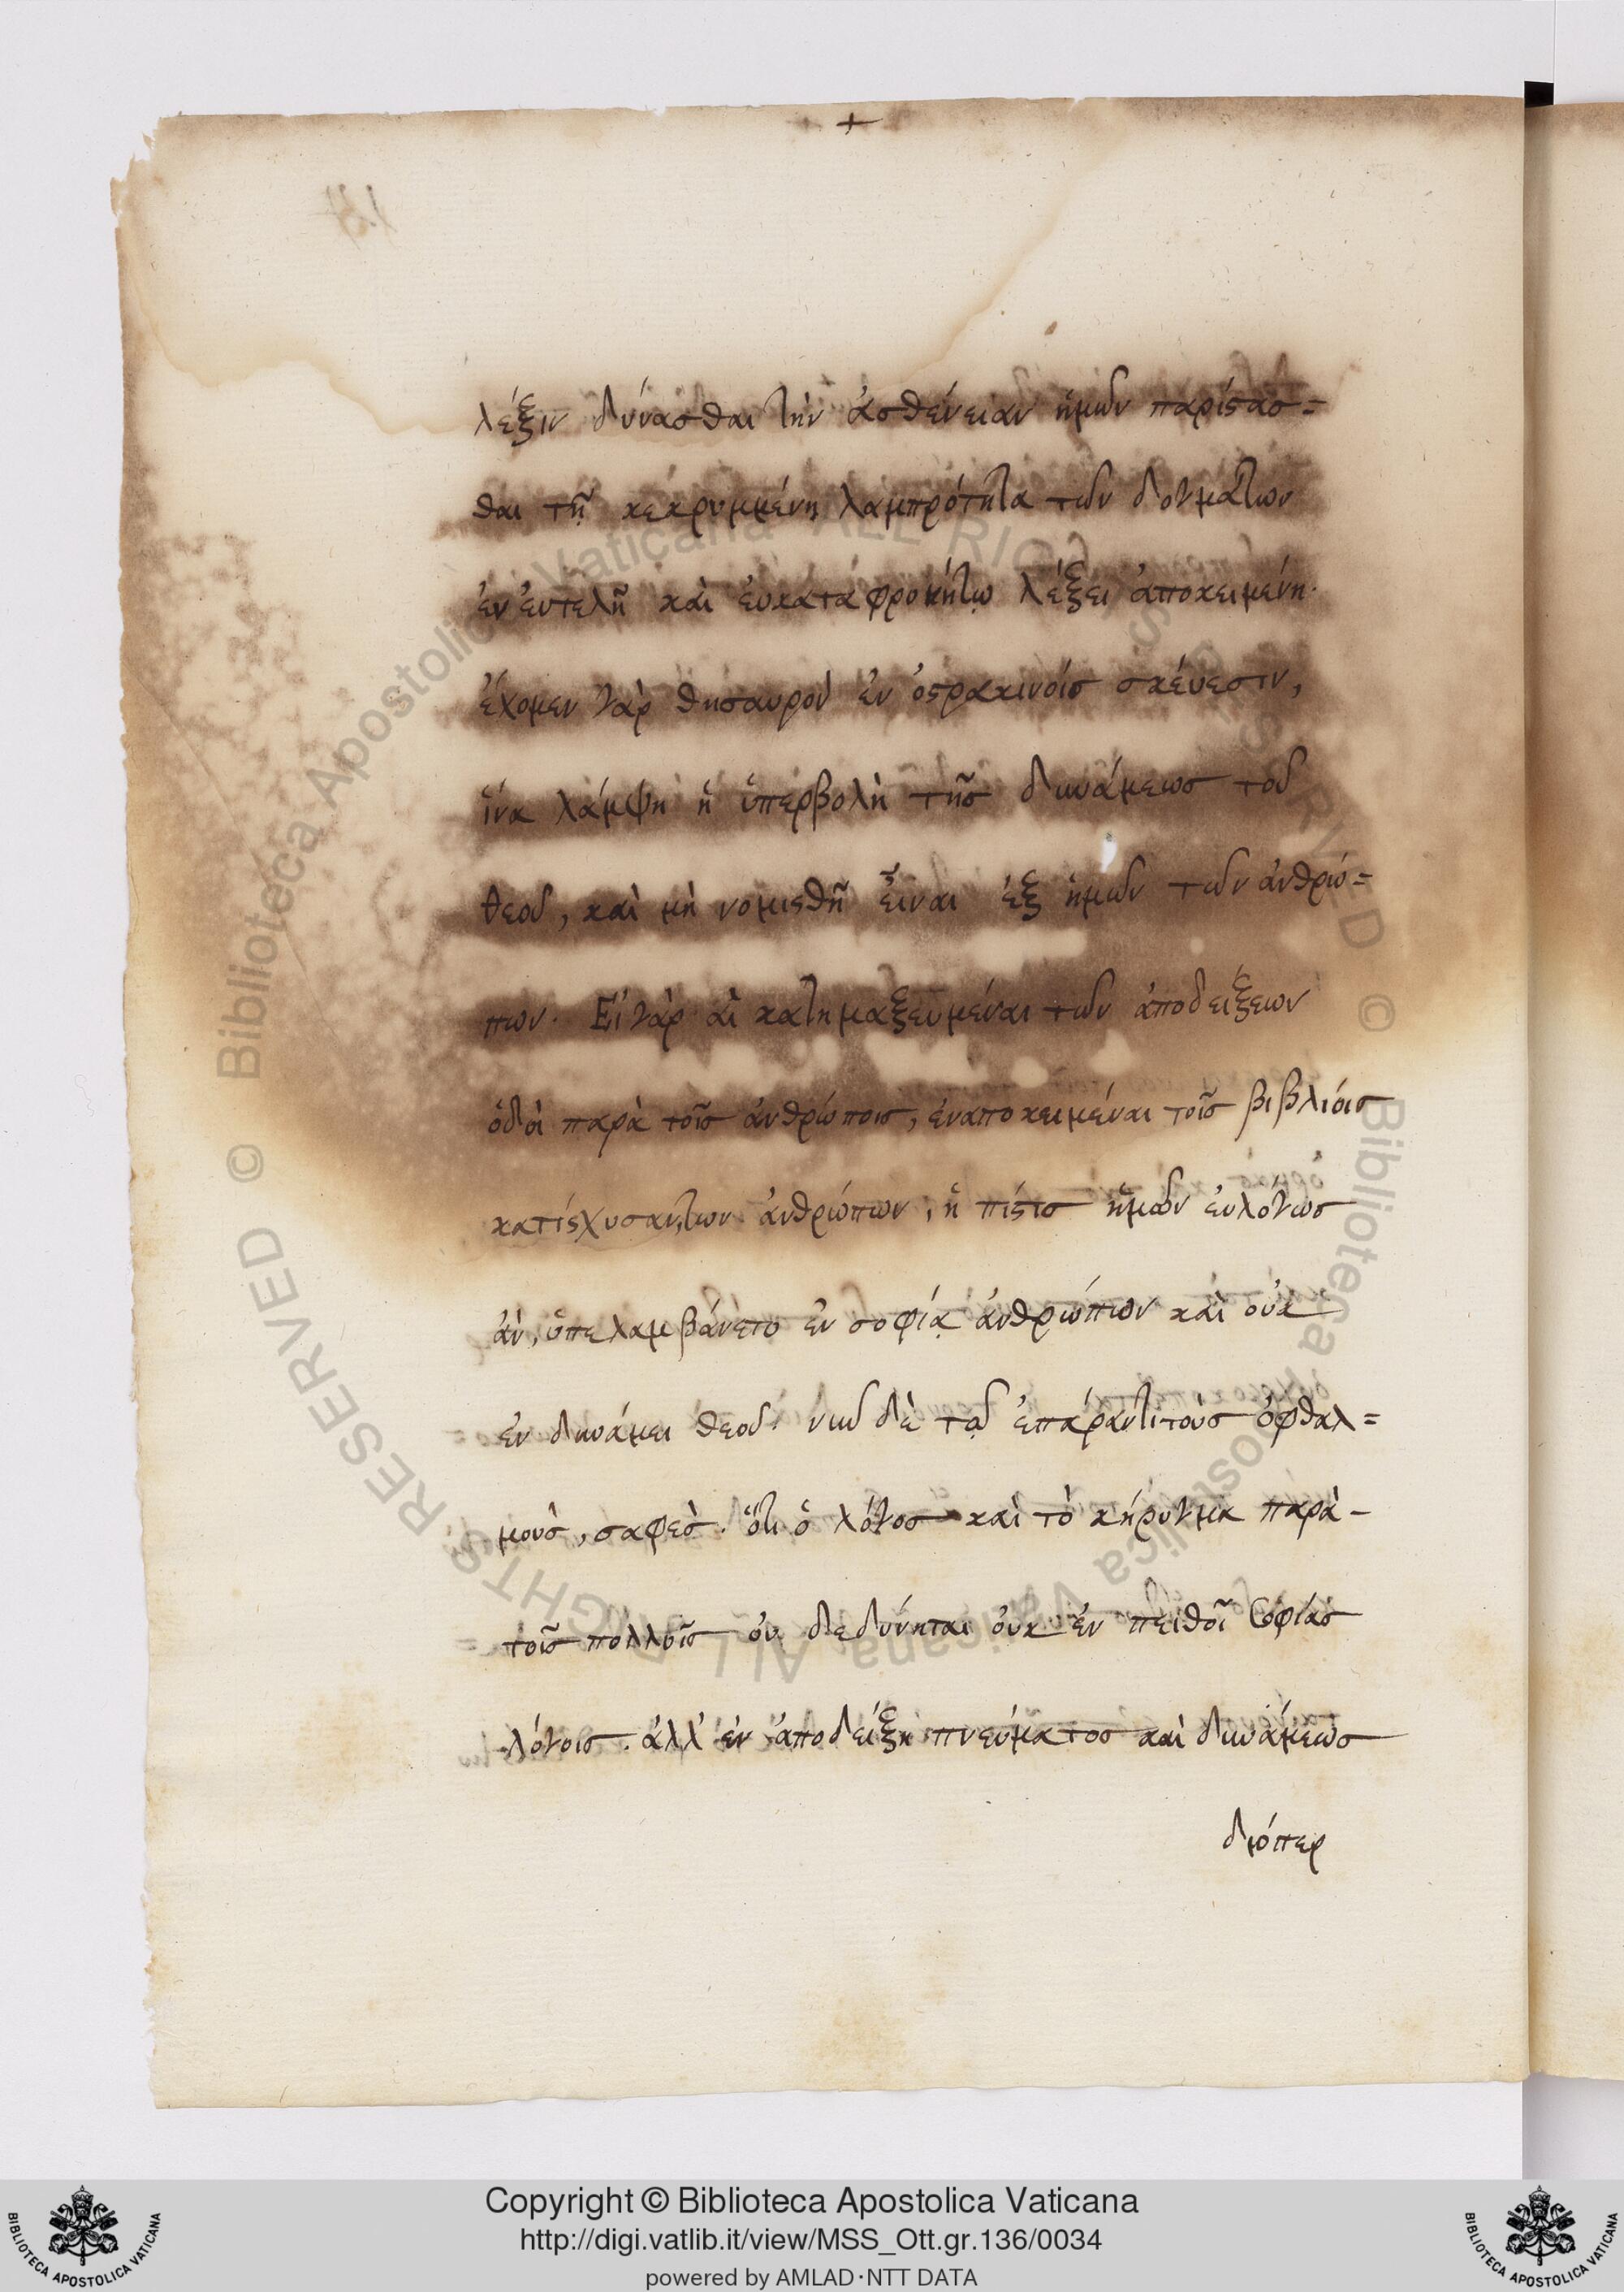 +
λέξιν δύνασθαι τὴν ἀσθένειαν ἡμῶν παρίστασ=
θαι τῇ κεκρυμμένη λαμπρότητα τῶν δογμάτων
ἐν ἐυτελῇ καὶ ἐυκαταφρονήτῳ λέξει ἀποκειμένη·
ἔχομεν γὰρ θησαυρὸν ἐν ὀστρακινοίς σκέυεσιν,
ἵνα λάμψη ἡ ὑπερβολὴ τῆς δυνάμεως τοῦ
θεοῦ, καὶ μὴ νομισθῆ εἶναι ἐξ ἡμῶν τῶν ἀνθρώ=
πων. Εἰ γὰρ αἱ κατημαξευμέναι τῶν ἀποδείξεων
ὁδοὶ παρὰ τοῖς ἀνθρώποις, ἐναποκειμέναι τοῖς βιβλιόις
κατίσχυσαν, των ἀνθρώπων, ἡ πίστις ἡμῶν ἐυλόγως
ἀν, ὑπελαμβάνετο ἐν σοφίᾳ ἀνθρώπων καὶ οὐκ
ἐν δυνάμει θεοῦ· νυν δὲ τῷ ἐπάραντι τοὺς ὀφθαλ=
μοὺς, σαφὲς. ὅτι ὁ λόγος καὶ τὸ κήρυγμα παρὰ-
τοῖς πολλοῖς ὀυ δεδύνηται ὀυκ ἐν πειθοῖ σοφίας
λόγοις. ἀλλ' ἐν ἀποδείξη πνεύματος καὶ δυνάμεως
διόπερ
© Biblioteca Apostolica Vaticana ALL RIGHTS RESERVED © Biblioteca Apostolica Vaticana ALL RIGHTS RESERVED
Copyright © Biblioteca Apostolica Vaticana
http://digi.vatlib.it/view/MSS_Ott.gr.136/0034
powered by AMLAD·NTT DATA
BIBLIOTECA APOSTOLICA VATICANA
BIBLIOTECA APOSTOLICA VATICANA